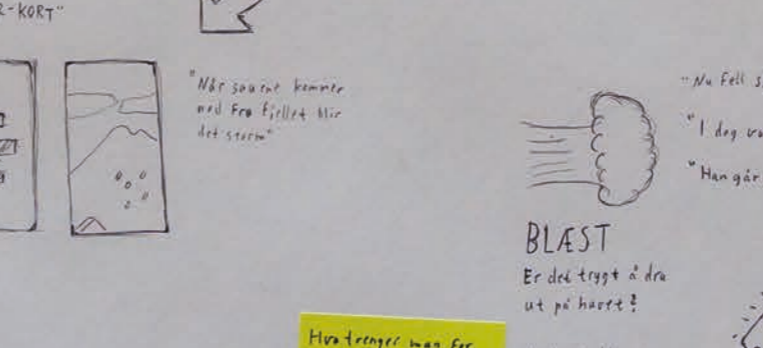 R-KORT"
"Når sauene kommer
ned fra fjellet blir
det storm"
"Nu fell s
"I dag va
"Han går
BLÆST
Er det trygt å dra
ut på havet?
Hva trenger man for